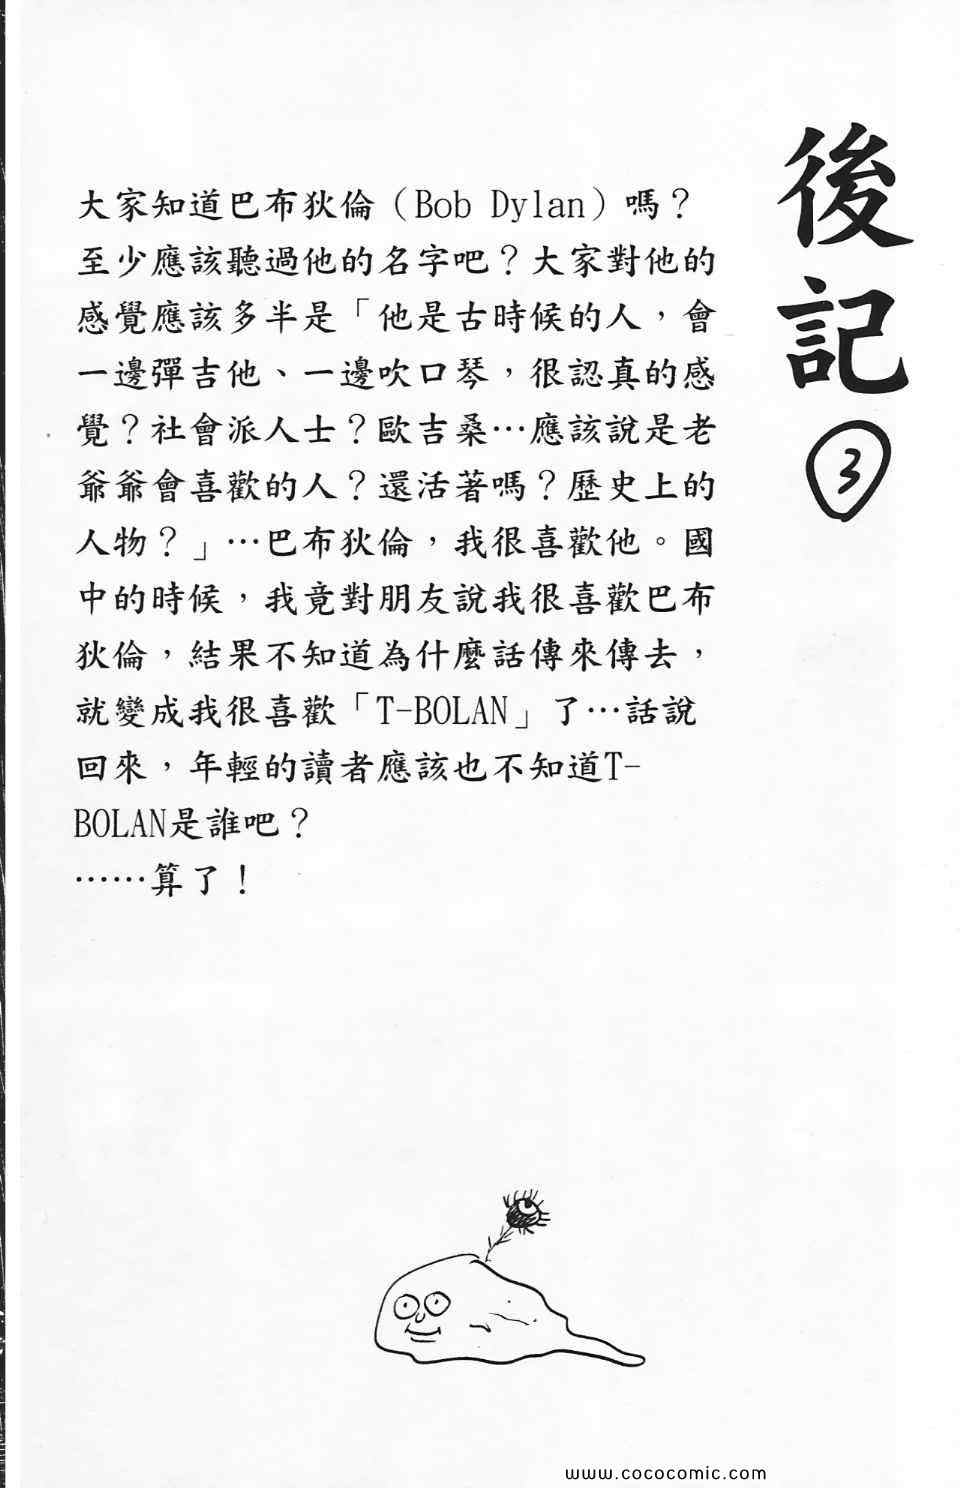 後記
3
大家知道巴布狄倫（Bob Dylan）嗎？
至少應該聽過他的名字吧？大家對他的
感覺應該多半是「他是古時候的人，會
一邊彈吉他、一邊吹口琴，很認真的感
覺？社會派人士？歐吉桑…應該說是老
爺爺會喜歡的人？還活著嗎？歷史上的
人物？」…巴布狄倫，我很喜歡他。國
中的時候，我竟對朋友說我很喜歡巴布
狄倫，結果不知道為什麼話傳來傳去，
就變成我很喜歡「T-BOLAN」了…話說
回來，年輕的讀者應該也不知道T-
BOLAN是誰吧？
……算了！
www.cococomic.com